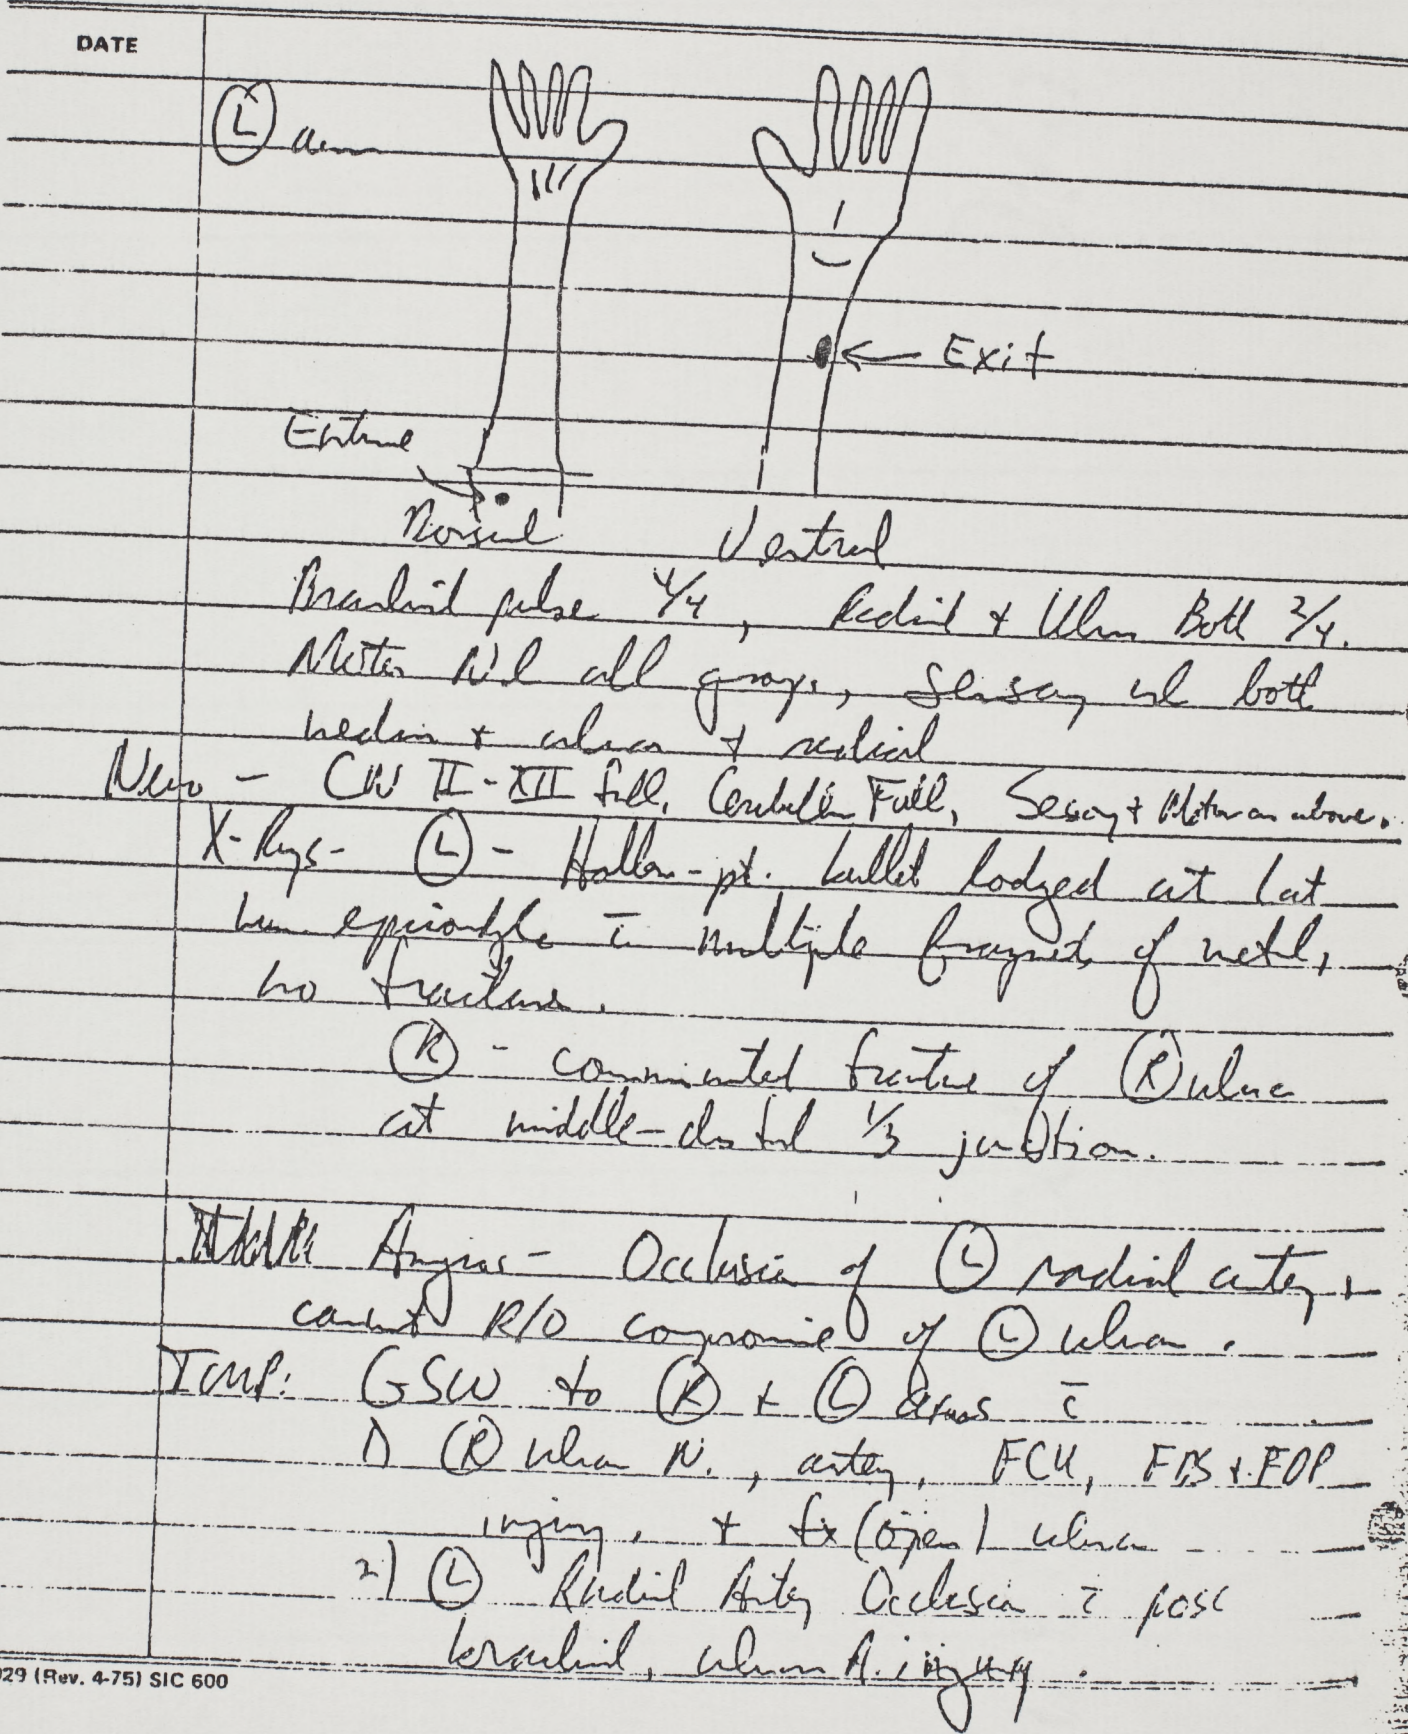 DATE
Ⓛ arm
← Exit
Entrance
Dorsal Ventral
Brachial pulse 4/4, Radial + Ulnar Both 2/4.
Motor Nl all groups, Sensory nl both
median + ulnar + radial
Neuro - CN II-XII full, Cerebellar Full, Sensory + Motor as above.
X-Rays - Ⓛ - Hollow-pt. bullet lodged at lat
hum epicondyle c̄ multiple fragments of metal,
no fracture.
Ⓡ - comminuted fracture of Ⓡ ulna
at middle-distal 1/3 junction.
Angios - Occlusion of Ⓛ radial artery,
cannot R/O compromise of Ⓛ ulnar.
Imp: GSW to Ⓡ + Ⓛ arms c̄
1) Ⓡ ulnar N., artery, FCU, FDS + FDP
injury, + fx (open) ulna
2) Ⓛ Radial Artery Occlusion c̄ poss
brachial, ulnar A. injury.
029 (Rev. 4-75) SIC 600